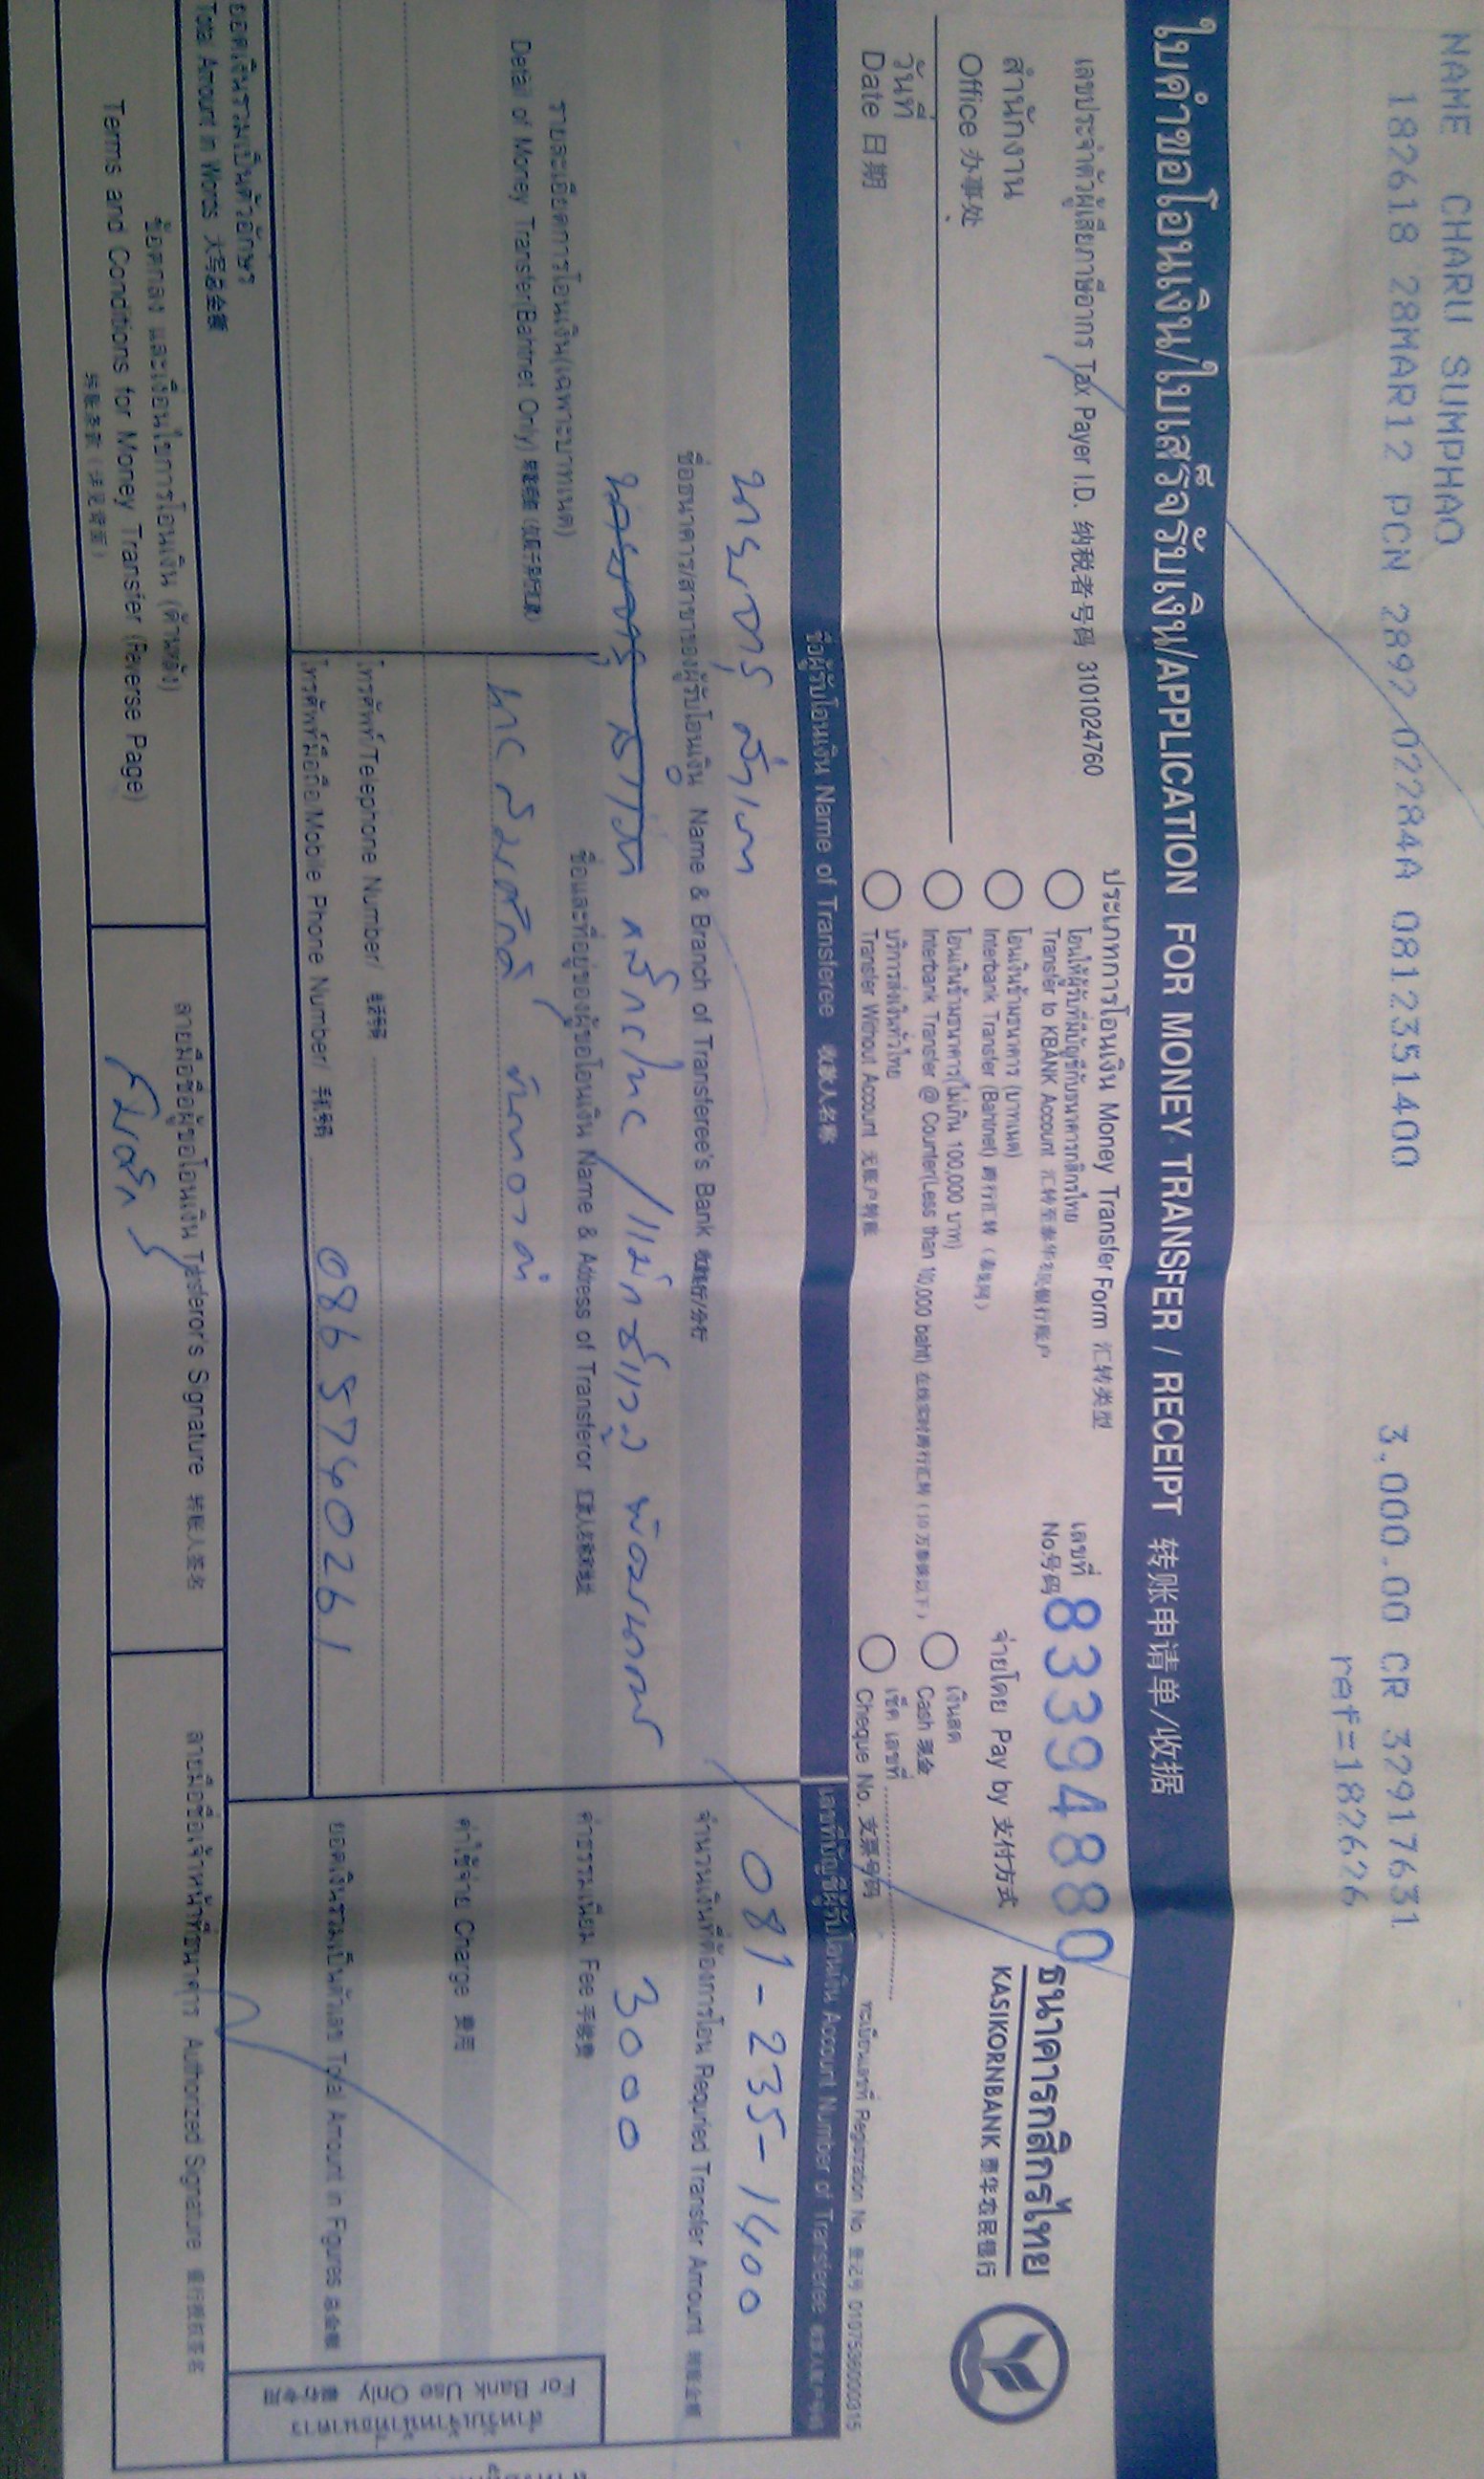 NAME CHARU SUMPHAO
182618 28MAR12 PCN 2892 02284A 0812351400 3,000.00 CR 32917631
ref=182626
ใบคำขอโอนเงิน/ใบเสร็จรับเงิน/APPLICATION FOR MONEY TRANSFER / RECEIPT 转账申请单/收据
เลขประจำตัวผู้เสียภาษีอากร Tax Payer I.D. 纳税者号码 3101024760
สำนักงาน
Office 办事处
วันที่
Date 日期
ประเภทการโอนเงิน Money Transfer Form 汇转类型
โอนให้ผู้รับที่มีบัญชีกับธนาคารกสิกรไทย
Transfer to KBANK Account 汇转至泰华农民银行账户
โอนเงินข้ามธนาคาร (บาทเนต)
Interbank Transfer (Bahtnet) 跨行汇转
โอนเงินข้ามธนาคาร(ไม่เกิน 100,000 บาท)
Interbank Transfer @ Counter(Less than 100,000 baht)
บริการส่งเงินทั่วไทย
Transfer Without Account 无账户转账
เลขที่
No号码 83394880
จ่ายโดย Pay by 支付方式
เงินสด
Cash 现金
เช็ค เลขที่
Cheque No. 支票号码
ธนาคารกสิกรไทย
KASIKORNBANK 泰华农民银行
ทะเบียนเลขที่ Registration No. 登记号 0107536000315
ชื่อผู้รับโอนเงิน Name of Transferee 收款人名称
เลขที่บัญชีผู้รับโอนเงิน Account Number of Transferee
นายจารุ สำเภา
081-235-1400
ชื่อธนาคาร/สาขาของผู้รับโอนเงิน Name & Branch of Transferee's Bank
จำนวนเงินที่ต้องการโอน Requried Transfer Amount
กสิกรไทย
3000
รายละเอียดการโอนเงิน(เฉพาะบาทเนต)
Detail of Money Transfer(Bahtnet Only)
ชื่อและที่อยู่ของผู้ขอโอนเงิน Name & Address of Transferor
ค่าธรรมเนียม Fee 手续费
นายสมศักดิ์
ค่าใช้จ่าย Charge 费用
โทรศัพท์/Telephone Number/
โทรศัพท์มือถือ/Mobile Phone Number/ 0865740261
ยอดเงินรวมเป็นตัวเลข Total Amount in Figures 总金额
ยอดเงินรวมเป็นตัวอักษร
Total Amount in Words 大写总金额
สำหรับเจ้าหน้าที่ธนาคาร
For Bank Use Only 银行专用
ข้อตกลง และเงื่อนไขการโอนเงิน (ด้านหลัง)
Terms and Conditions for Money Transfer (Reverse Page)
ลายมือชื่อผู้ขอโอนเงิน Transferor's Signature 转账人签名
ลายมือชื่อเจ้าหน้าที่ธนาคาร Authorized Signature